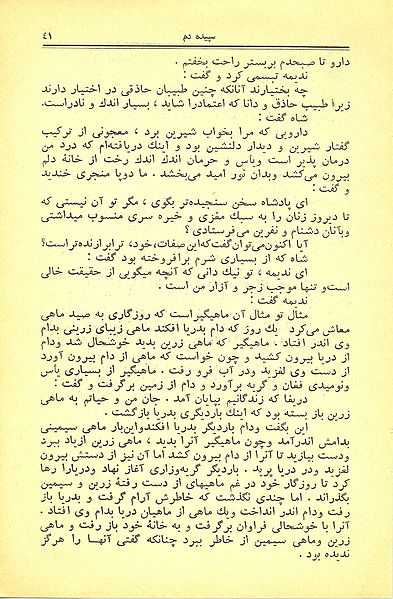 سپیده دم
۴۱
دارو تا صبحدم بر بستر راحت بخفتم .
ندیمه تبسمی کرد و گفت :
چه بختیارند آنانکه چنین طبیبان حاذقی در اختیار دارند
زیرا طبیب حاذق و دانا که اعتمادرا شاید ، بسیار اندك و نادراست.
شاه گفت :
دارویی که مرا بخواب شیرین برد ، معجونی از ترکیب
گفتار شیرین و دیدار دلنشین بود و اینك دریافته‌ام که درد من
درمان پذیر است ویاس و حرمان اندك اندك رخت از خانهٔ دلم
بیرون می‌کشد وبدان نور امید می‌بخشد . ما دوپا منجری خندید
و گفت :
ای پادشاه سخن سنجیده‌تر بگوی ، مگر تو آن نیستی که
تا دیروز زنان را به سبك مغزی و خیره سری منسوب میداشتی
وبآنان دشنام و نفرین می‌فرستادی ؟
آیا اکنون‌می‌توان‌گفت‌که‌این‌صفات،خود، ترابرازنده‌تراست؟
شاه که از بسیاری شرم برافروخته بود گفت :
ای ندیمه ، تو نیك دانی که آنچه میگویی از حقیقت خالی
است‌و تنها موجب زجر و آزار من است .
ندیمه گفت :
مثال تو مثال آن ماهیگیراست که روزگاری به صید ماهی
معاش می‌کرد یك روز که دام بدریا افکند ماهی زیبای زرینی بدام
وی اندر افتاد . ماهیگیر که ماهی زرین بدید خوشحال شد ودام
از دریا بیرون کشید و چون خواست که ماهی از دام بیرون آورد
از دست وی لغزید ودر آب فرو رفت . ماهیگیر از بسیاری یاس
ونومیدی فغان و گریه برآورد و دام از زمین برگرفت و گفت :
دریغا که زندگانیم بپایان آمد . جان من و حیاتم به ماهی
زرین باز بسته بود که اینك باردیگری بدریا بازگشت .
این بگفت ودام باردیگر بدریا افکندواین‌بار ماهی سیمینی
بدامش اندرآمد وچون ماهیگیر آنرا بدید ، ماهی زرین ازیاد ببرد
ودست بیازید تا آنرا از دام بیرون کشد اما آن نیز از دستش بیرون
لغزید ودر دریا پرید . باردیگر گریه‌وزاری آغاز نهاد ودریارا رها
کرد تا روزگار خود در غم ماهیهای از دست رفتهٔ زرین و سیمین
بگذراند . اما چندی نگذشت که خاطرش آرام گرفت و بدریا باز
رفت ودام اندر انداخت ویك ماهی از ماهیان دریا بدام وی افتاد .
آنرا با خوشحالی فراوان برگرفت و به خانهٔ خود باز رفت و ماهی
زرین وماهی سیمین از خاطر ببرد چنانکه گفتی آنهـا را هرگز
ندیده بود .